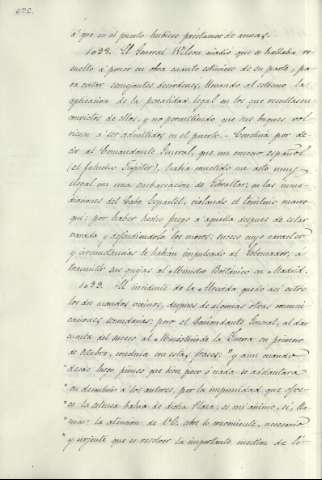 á, que en el puerto hubiese préstamos de armas.
1032. El General Wilson añadió que se hallaba re-
suelto á poner en obra cuanto estuviese de su parte, pa-
ra evitar semejantes desórdenes, llevando al extremo la
aplicacion de la penalidad legal en los que resultasen
convictos de ellos, y no permitiendo que sus buques vol-
viesen á ser admitidos en el puerto.- Concluía por de-
cir al Comandante General, que un crucero español
(el falucho Júpiter), habia cometido un acto muy
ilegal con una embarcacion de Gibraltar, en las inme-
diaciones del Cabo Espartel, violando el territorio marro-
quí, por haber hecho fuego á aquella despues de estar
varada y defendiéndola los moros; suceso cuyo carácter
y circunstancias le habian impulsado al Gobernador, á
trasmitir sus quejas al Ministro Británico en Madrid.
1033. El incidente de la quedó así entre
los dos mandos vecinos, despues de algunas otras comuni-
caciones secundarias; pero el Comandante General, al dar
cuenta del suceso al Ministerio de la Guerra en primero
de Octubre, concluía con estas frases: "y aun cuando
"desde luego pienso que bien poco ó nada se adelantará
"en descubrir á los autores, por la impunidad que ofre-
"ce la extensa bahia de dicha Plaza, es mi ánimo, sí, lla-
"mar la atencion de V.E. sobre lo conveniente, necesario
"y urgente que es resolver la importante medida de li-